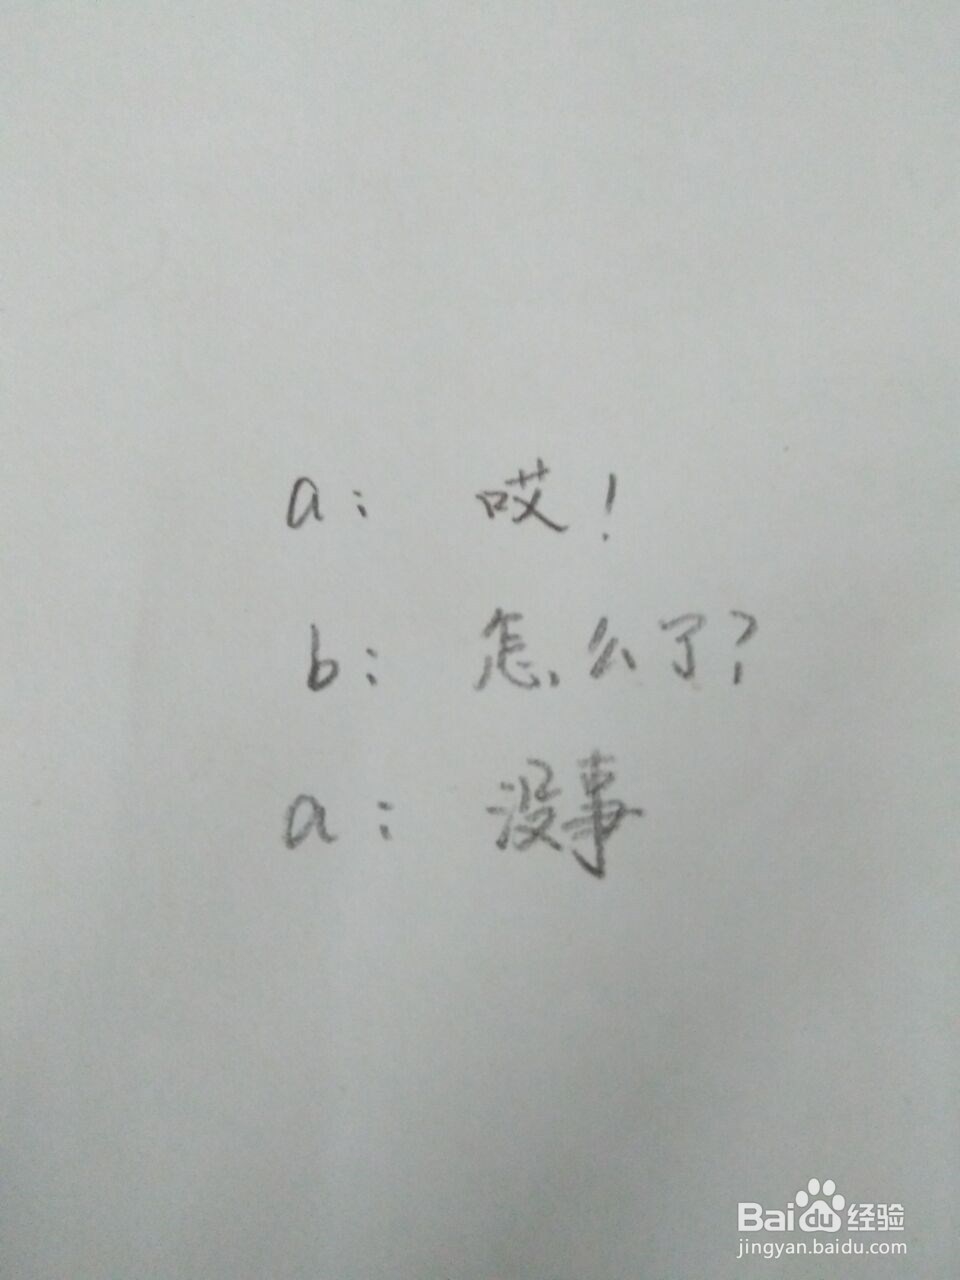 a: 哎！
b: 怎么了？
a: 没事
Bai du 经验
jingyan.baidu.com